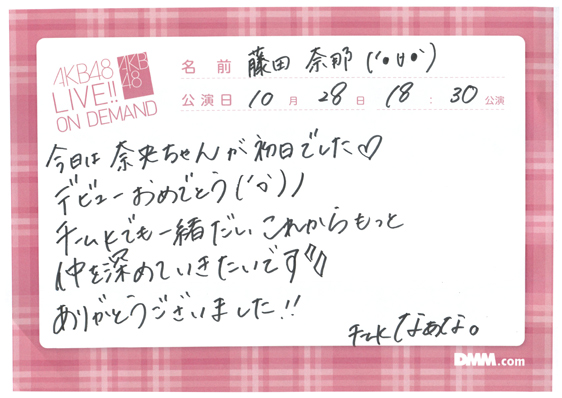 AKB48
LIVE!!
ON DEMAND
AKB
48
名前 藤田 奈那 ('•u•`)
公演日 10月28日 18:30公演
今日は奈央ちゃんが初日でした♡
デビューおめでとう('ô`)ノ
チームKでも一緒だし、これからもっと
仲を深めていきたいです
ありがとうございました!!
チームK なぁな。
DMM.com